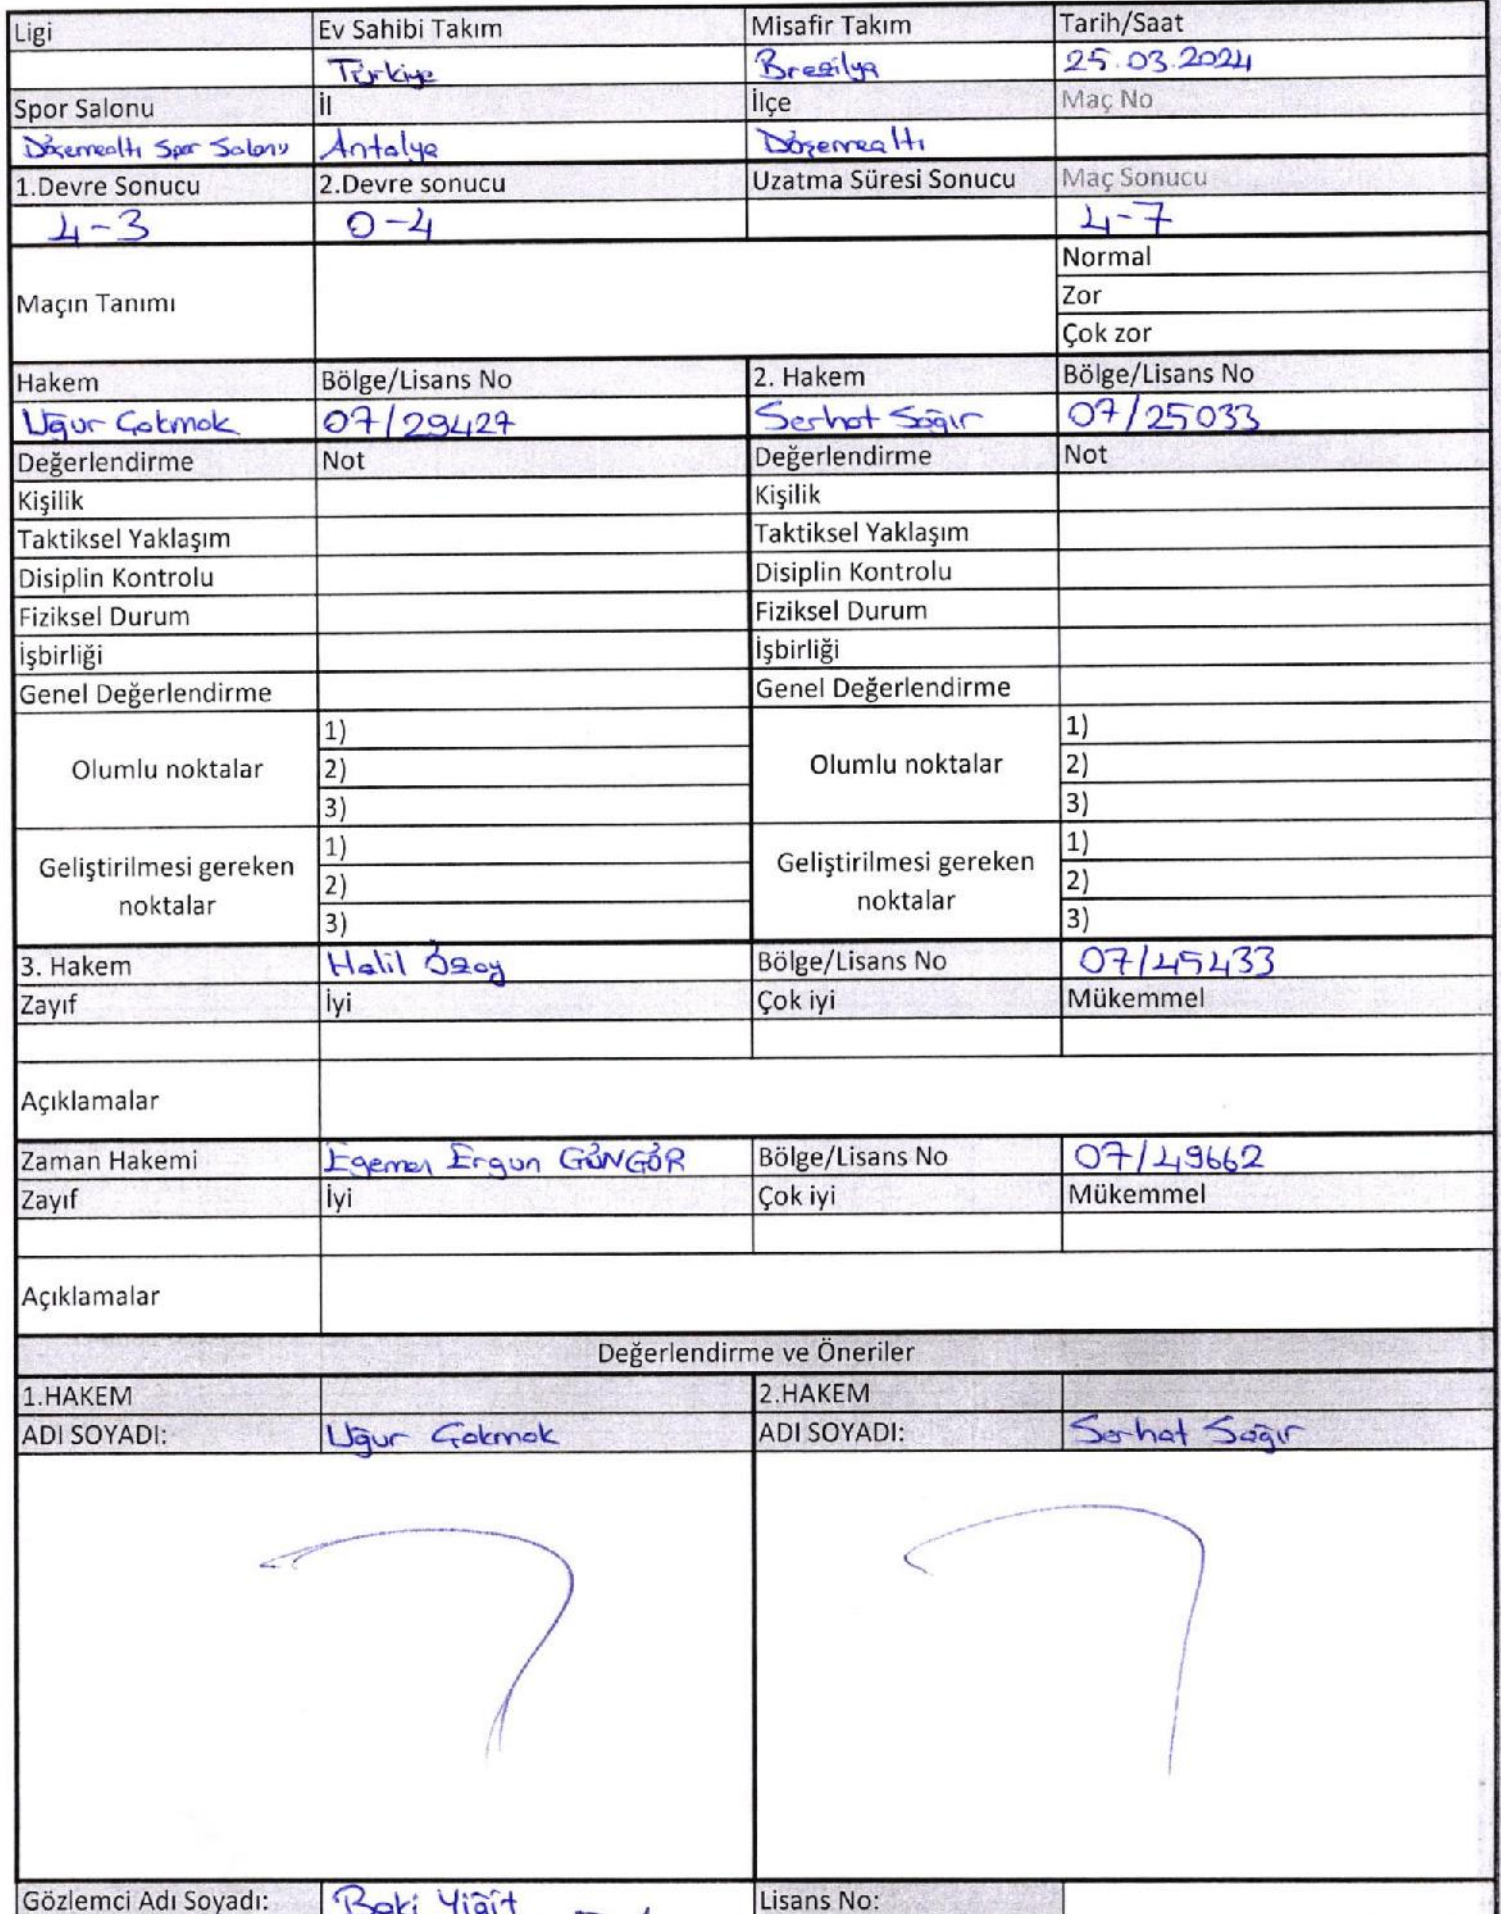 Ligi Ev Sahibi Takım Misafir Takım Tarih/Saat
Türkiye Brezilya 25.03.2024
Spor Salonu İl İlçe Maç No
Döşemealtı Spor Salonu Antalya Döşemealtı
1.Devre Sonucu 2.Devre sonucu Uzatma Süresi Sonucu Maç Sonucu
4-3 0-4 4-7
Normal
Maçın Tanımı Zor
Çok zor
Hakem Bölge/Lisans No 2. Hakem Bölge/Lisans No
Uğur Çakmak 07/29427 Serhat Sağır 07/25033
Değerlendirme Not Değerlendirme Not
Kişilik Kişilik
Taktiksel Yaklaşım Taktiksel Yaklaşım
Disiplin Kontrolu Disiplin Kontrolu
Fiziksel Durum Fiziksel Durum
İşbirliği İşbirliği
Genel Değerlendirme Genel Değerlendirme
1) 1)
Olumlu noktalar 2) Olumlu noktalar 2)
3) 3)
1) 1)
Geliştirilmesi gereken 2) Geliştirilmesi gereken 2)
noktalar 3) noktalar 3)
3. Hakem Halil Özoy Bölge/Lisans No 07/45433
Zayıf İyi Çok iyi Mükemmel
Açıklamalar
Zaman Hakemi Egemen Ergun GÜNGÖR Bölge/Lisans No 07/49662
Zayıf İyi Çok iyi Mükemmel
Açıklamalar
Değerlendirme ve Öneriler
1.HAKEM 2.HAKEM
ADI SOYADI: Uğur Çakmak ADI SOYADI: Serhat Sağır
Gözlemci Adı Soyadı: Baki Yiğit Lisans No: